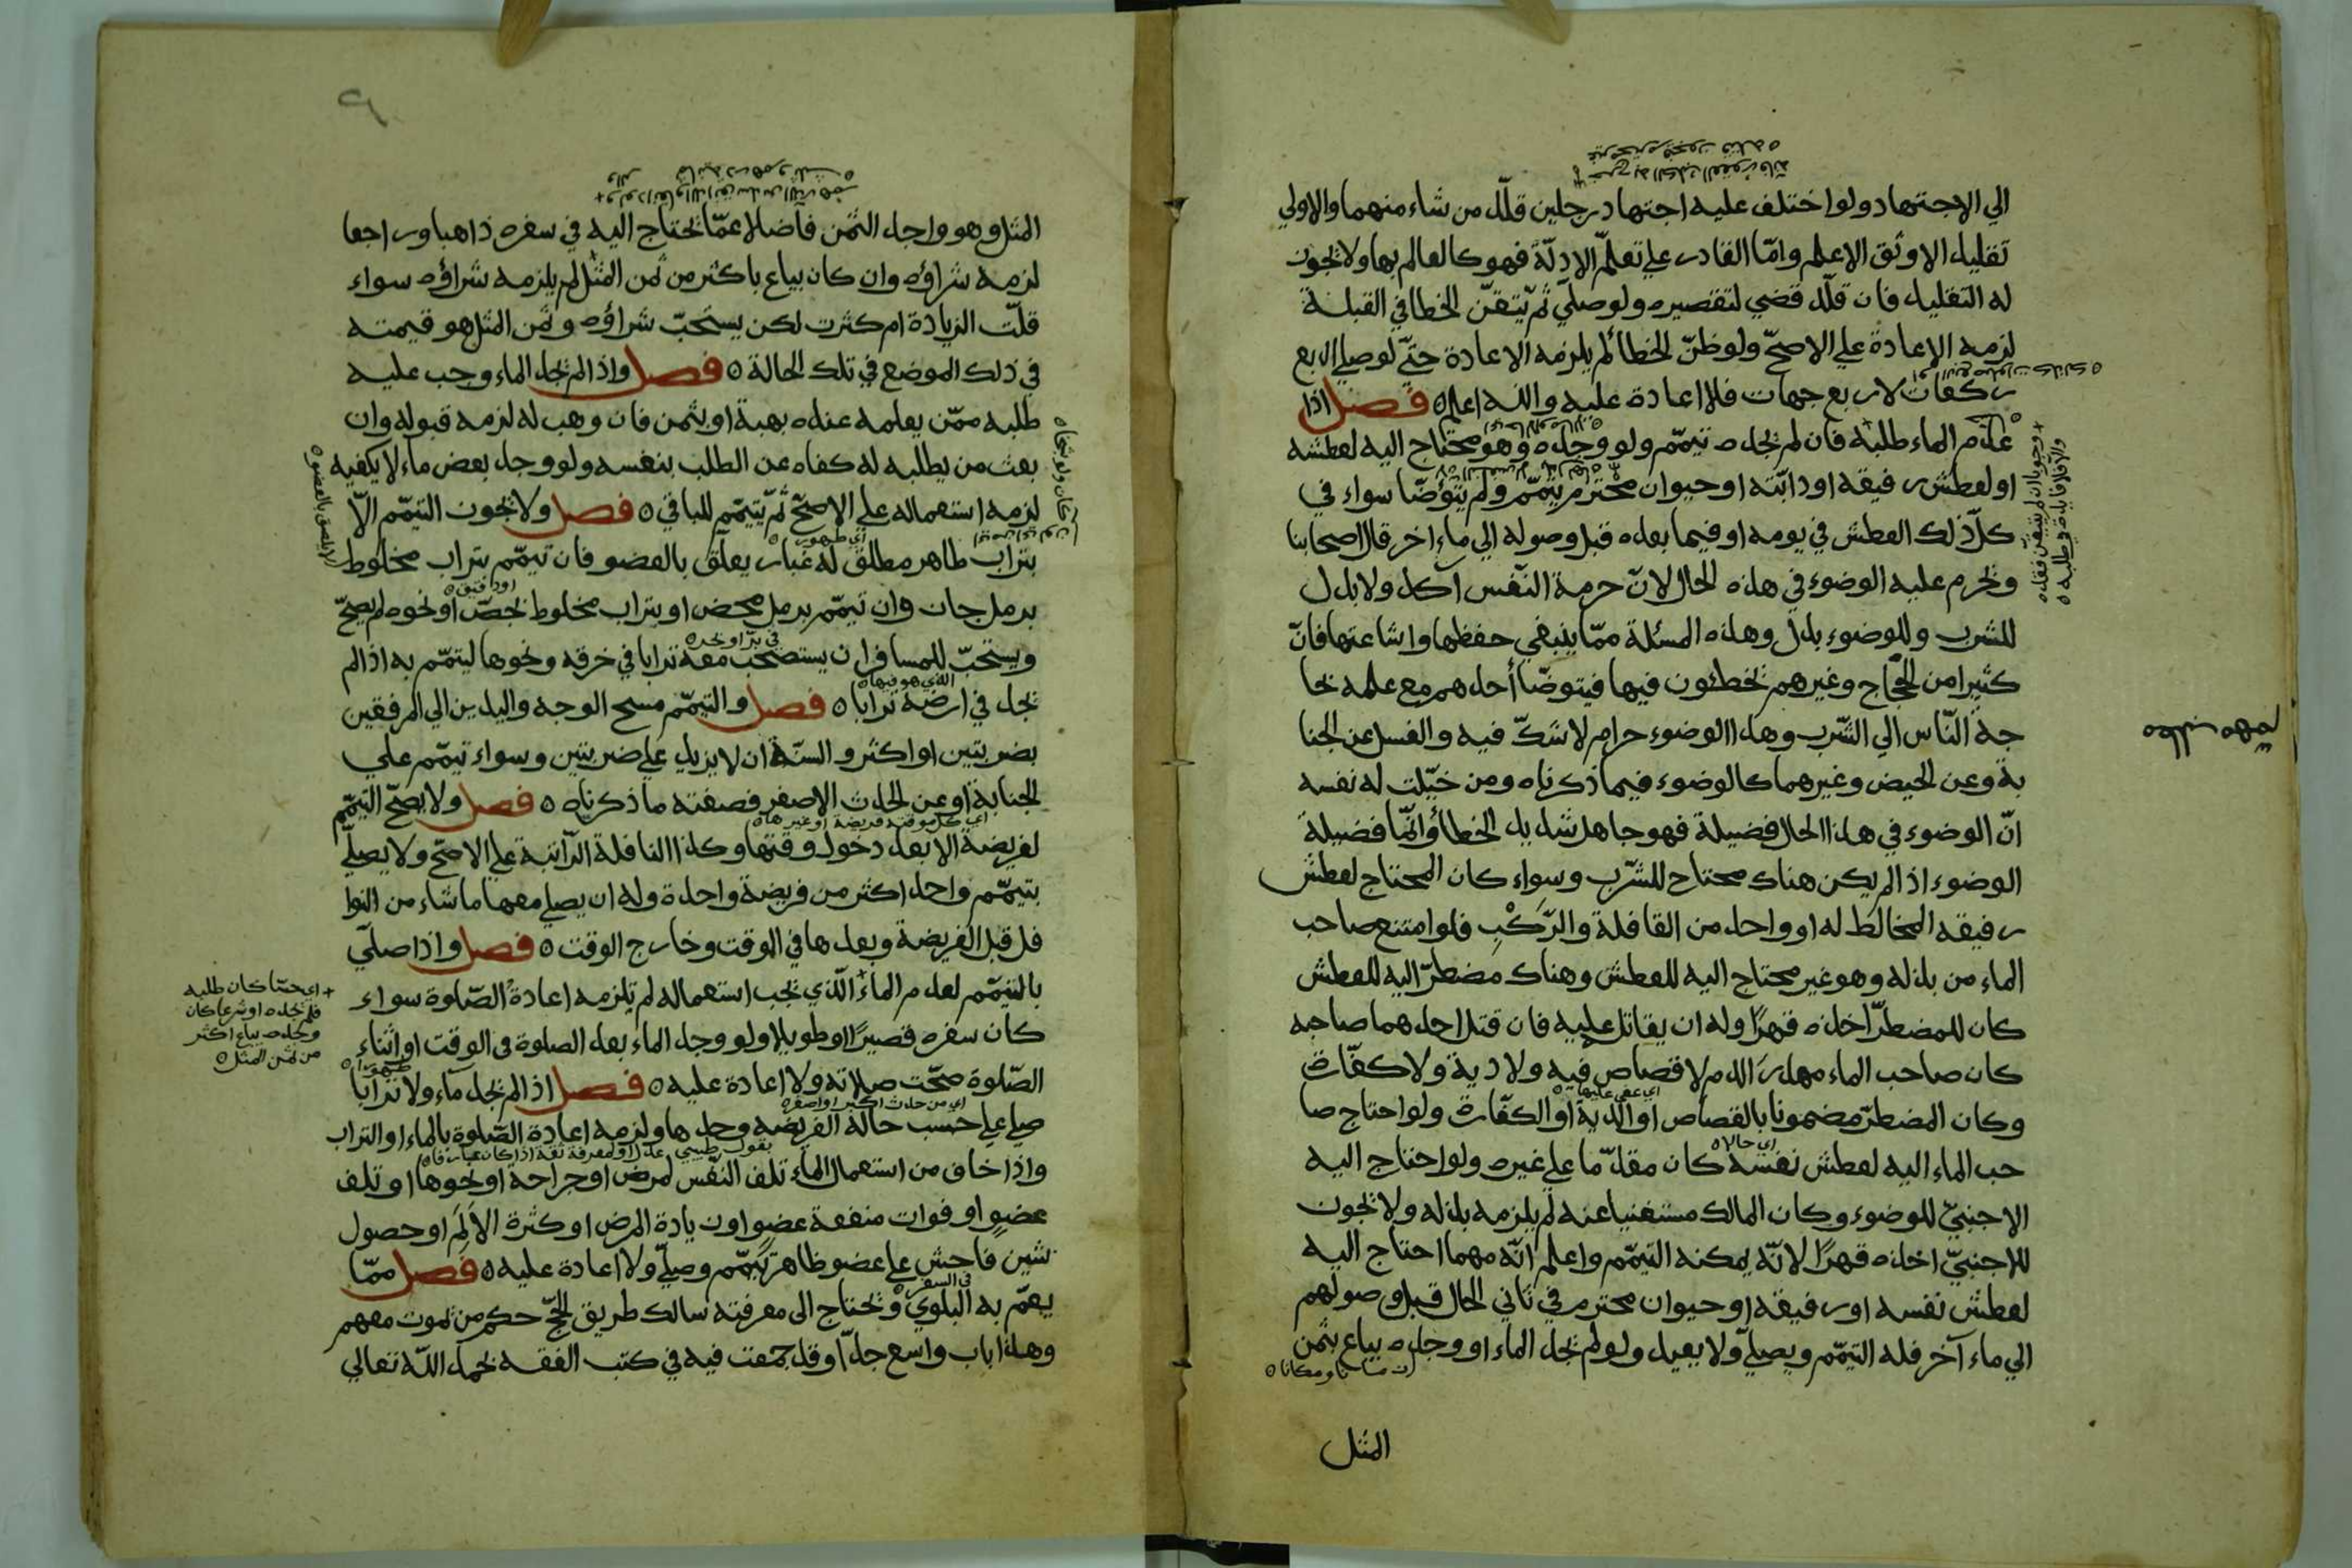 الي الاجتهاد ولو اختلف عليه اجتهاد رجلين قلّد من شاء منهما والاولي
تقليد الاوثق الاعلم وامّا القادر علي تعلّم الادلّة فهو كالعالم بها ولا يجوز
له التقليد فان قلّد قضي لتقصيره ولو صلّي ثمّ تيقّن الخطا في القبلة
لزمه الإعادة علي الاصحّ ولو ظنّ الخطأ لم يلزمه الاعادة حتّي لو صلي اربع
ركعات لاربع جهات فلا اعادة عليه والله اعلم ه فصل اذا
عدم الماء طلبه فان لم يجده تيمّم ولو وجده وهو محتاج اليه لعطشه
او لعطش رفيقه او دابّته او حيوان محترم تيمّم ولم يتوضّا سواء في
كلّ ذلك العطش في يومه او فيما بعده قبل وصوله الي ماء اخر قال اصحابنا
ويحرم عليه الوضوء في هذه الحال لانّ حرمة النّفس آكد ولا بدل
للشرب وللوضوء بدل وهذه المسئلة ممّا ينبغي حفظها واشاعتها فانّ
كثيرا من الحجّاج وغيرهم يخطئون فيها فيتوضّا أحدهم مع علمه بحا
جة النّاس الي الشّرب وهذا الوضوء حرام لا شكّ فيه والغسل عن الجنا
بة وعن الحيض وغيرهما كالوضوء فيما ذكرناه ومن خيّلت له نفسه
انّ الوضوء في هذا الحال فضيلة فهو جاهل شديد الخطأ وانّما فضيلة
الوضوء اذا لم يكن هناك محتاج للشّرب وسواء كان المحتاج لعطش
رفيقه المخالط له او واحد من القافلة والرّكب فلو امتنع صاحب
الماء من بذله وهو غير محتاج اليه للعطش وهناك مضطرّ اليه للعطش
كان للمضطرّ اخذه قهرًا وله ان يقاتل عليه فان قتل احدهما صاحبه
كان صاحب الماء مهدر الدم لا قصاص فيه ولا دية ولا كفّارة
وكان المضطرّ مضمونا بالقصاص او الدية او الكفّارة ولو احتاج صا
حب الماء اليه لعطش نفسه كان مقدّما علي غيره ولو احتاج اليه
الاجنبيّ للوضوء وكان المالك مستغنيا عنه لم يلزمه بذله ولا يجوز
للاجنبيّ اخذه قهرًا لانّه يمكنه التيمّم واعلم انّه مهما احتاج اليه
لعطش نفسه او رفيقه او حيوان محترم في ثاني الحال قبل وصولهم
الي ماء آخر فله التيمّم ويصلّي ولا يعيد ولو لم يجد الماء او وجده يباع بثمن
المثل
المثل وهو واجد الثمن فاضلا عمّا يحتاج اليه في سفره ذاهبا وراجعا
لزمه شراؤه وان كان يباع باكثر من ثمن المثل لم يلزمه شراؤه سواء
قلّت الزيادة ام كثرت لكن يستحبّ شراؤه وثمن المثل هو قيمته
في ذلك الموضع في تلك الحالة ه فصل واذا لم يجد الماء وجب عليه
طلبه ممّن يعلمه عنده بهبة او بثمن فان وهب له لزمه قبوله وان
بعث من يطلبه له كفاه عن الطلب بنفسه ولو وجد بعض ماء لا يكفيه
لزمه استعماله علي الاصحّ ثمّ يتيمّم للباقي ه فصل ولا يجوز التيمّم الاّ
أي طهور
بتراب طاهر مطلق له غبار يعلّق بالعضو فان تيمّم بتراب مخلوط
برمل جاز وان تيمّم برمل محض او بتراب مخلوط بجصّ او نحوه لم يصحّ
ويستحبّ للمسافر ان يستصحب معه ترابا في خرقه ونحوها ليتمّم به اذا لم
الذي هو فيها ه
يجد في ارضه ترابا ه فصل والتيمّم مسح الوجه واليدين الي المرفقين
بضربتين او اكثر والسنّة ان لا يزيد علي ضربتين وسواء تيمّم علي
الجنابة او عن الحدث الاصغر فصفته ما ذكرناه ه فصل ولا يصحّ التيمّم
لفريضة الا بعد دخول وقتها وكذا النافلة الرّاتبة علي الاصحّ ولا يصلّي
بتيمّم واحد اكثر من فريضة واحدة وله ان يصلي معها ما شاء من النوا
فل قبل الفريضة وبعدها في الوقت وخارج الوقت ه فصل واذا صلّي
بالتيمّم لعدم الماء الّذي يجب استعماله لم تلزمه اعادة الصّلوة سواء
+ اي حسّا كان طلبه
فلم يجده او شرعا كان
وجده يباع اكثر
من ثمن المثل ه
كان سفره قصيرًا او طويلا ولو وجد الماء بعد الصلوة في الوقت او اثناء
الصّلوة صحّت صلاته ولا اعادة عليه ه فصل اذا لم يجد ماء ولا ترابا
اي من حدث اكبر او اصغر ه
صلي علي حسب حاله الفريضه وحدها ولزمه اعادة الصّلوة بالماء او التراب
واذا خاف من استعمال الماء تلف النّفس لمرض او جراحة او نحوها او تلف
عضو او فوات منفعة عضو او زيادة المرض او كثرة الألم او حصول
شين فاحش علي عضو ظاهر تيمّم وصلّي ولا اعادة عليه ه فصل ممّا
في السفر ه
يعمّ به البلوي ويحتاج الي معرفته سالك طريق الحجّ حكم من يموت معهم
وهذا باب واسع جدّا وقد جمعت فيه في كتب الفقه بحمد الله تعالي